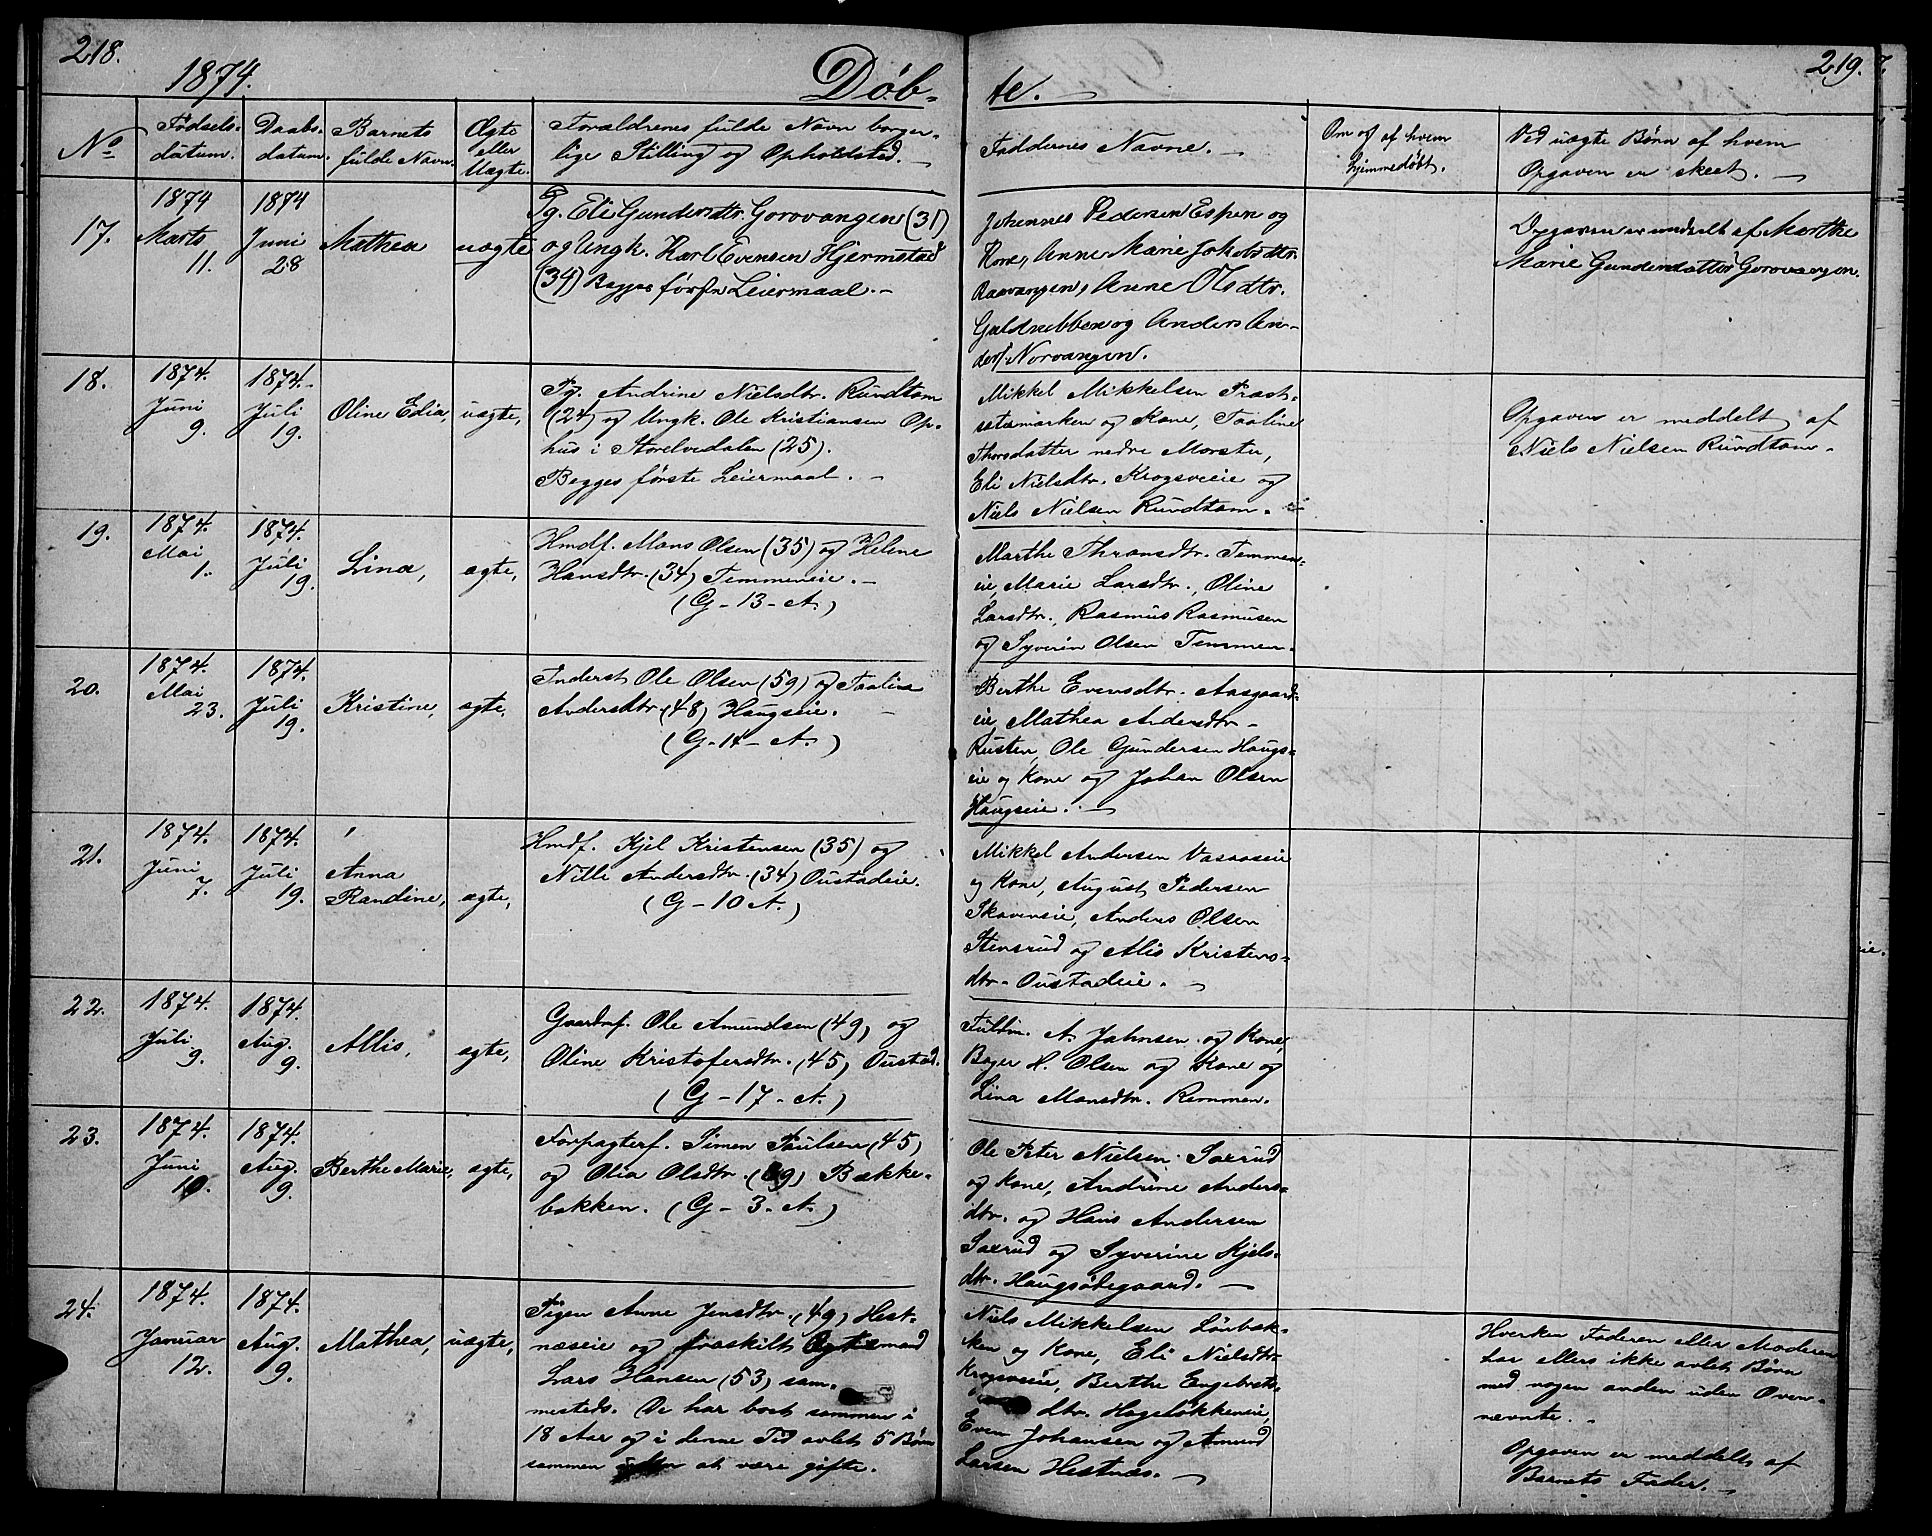 218.
1874.
Døb-
te.
219.
No
Fødsels-
datum.
Daabs-
datum.
Barnets
fulde Navn.
Ægte
eller
Uægte.
Forældrenes fulde Navn borger-
lige Stilling og Opholdsted.
Faddernes Navne.
Om og af hvem
hjemmedøbt.
Ved uægte Børn af hvem
Opgaven er skeet.
17.
1874
Marts
11.
1874
Juni
28
Mathea
uægte
Pg. Eli Gundersdtr. Gorovangen (31)
og Ungk. Karl Evensen Hjermstad
(34) Begges førsn Leiermaal.
Johennes Pedersen Espen og
Kone, Anne Marie Jakobsdtr.
Raavangen, Anne Olsdtr.
Guldnebben og Anders An-
ders. Norvangen.
Opgaven er meddelt af Marthe
Marie Gundersdatter Gorovangen.
18.
1874.
Juni
9.
1874.
Juli
19.
Oline Edia,
uægte,
Pg. Andrine Nielsdtr. Rundtom
(24) og Ungk. Ole Kristiansen Op-
hus i Storelvedalen (25).
Begges første Leiermaal.
Mikkel Mikkelsen Præst-
sætermarken og Kone, Taaline
Thorsdatter nedre Morstu,
Eli Nielsdtr. Krogsveie og
Niels Nielsen Rundtom.
Opgaven er meddelt af
Niels Nielsen Rundtom.
19.
1874.
Mai
1.
1874.
Juli
19.
Lina,
ægte,
Hmdf. Mons Olsen (35) og Helene
Hansdtr. (34) Temmeneie.
(G-13-A.)
Marthe Thronsdtr. Temmen-
eie, Marie Larsdtr., Oline
Larsdtr., Rasmus Rasmusen
og Syverin Olsen Temmen.
20.
1874.
Mai
23.
1874.
Juli
19.
Kristine,
ægte,
Inderst Ole Olsen (59) og Taaline
Andersdtr. (48) Haugseie.
(G-14-A.)
Berthe Evensdtr. Aasgaard-
eie, Mathea Andersdtr.
Rusten, Ole Gundersen Haugs-
eie og Kone og Johan Olsen
Haugseie.
21.
1874.
Juni
7.
1874.
Juli
19.
Anna
Randine,
ægte,
Hmdf. Kjel Kristensen (35) og
Nille Andersdtr. (34) Oustadeie.
(G-10 A.)
Mikkel Andersen Vasaaseie
og Kone, August Pedersen
Skaveneie, Anders Olsen
Stensrud og Alis Kristens-
dtr. Oustadeie.
22.
1874.
Juli
9.
1874.
Aug.
9.
Allis,
ægte,
Gaardmf. Ole Amundsen (49) og
Oline Kristofersdtr. (45) Oustad.
(G-17-A.)
Fuldm. A. Jahnsen og Kone,
Bager H. Olsen og Kone og
Lina Monsdtr. Remmen.
23.
1874.
Juni
10.
1874.
Aug.
9.
Berthe Marie,
ægte,
Forpagterf. Simen Paulsen (45)
og Olia Olsdtr. Bække-
bakken. (G-3-A.)
Ole Peter Nielsen Saxrud
og Kone, Andrine Anders-
dtr. og Hans Andersen
Saxrud og Syverine Kjels-
dtr. Haugsødegaard.
24.
1874.
Januar
12.
1874.
Aug.
9.
Mathea,
uægte,
Pigen Anne Jensdtr. (49) Hest-
næseie og fraskilt Ægtemand
Lars Hansen (53) sam-
mesteds. De har boet sammen i
18 Aar og i denne Tid avlet 5 Børn
sammen uden at være gifte.
Niels Mikkelsen Lørbæk-
ken og Kone, Eli Nielsdtr.
Krogsveie, Berthe Engebrets-
dtr. Hageløkkeneie,
Even Johansen og Amund
Larsen Hestnæs.
Hverken Faderen eller Moderen
har ellers ikke avlet Børn
med nogen anden uden Oven-
nævnte.
Opgaven er meddelt af
Barnets Fader.